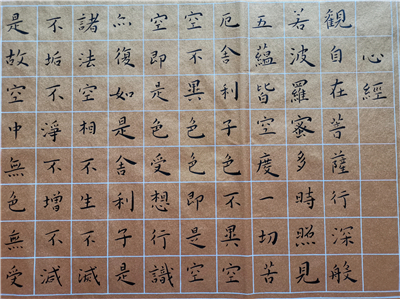 心經
観自在菩薩行深般
若波羅蜜多時照見
五蘊皆空度一切苦
厄舍利子色不異空
空不異色色即是空
空即是色受想行識
亦復如是舍利子是
諸法空相不生不滅
不垢不淨不增不減
是故空中無色無受